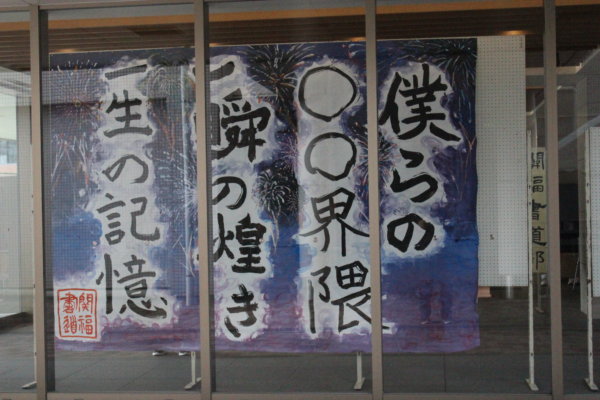 僕らの
〇〇界隈
一瞬の煌き
一生の記憶
関福
書道
開福書道部